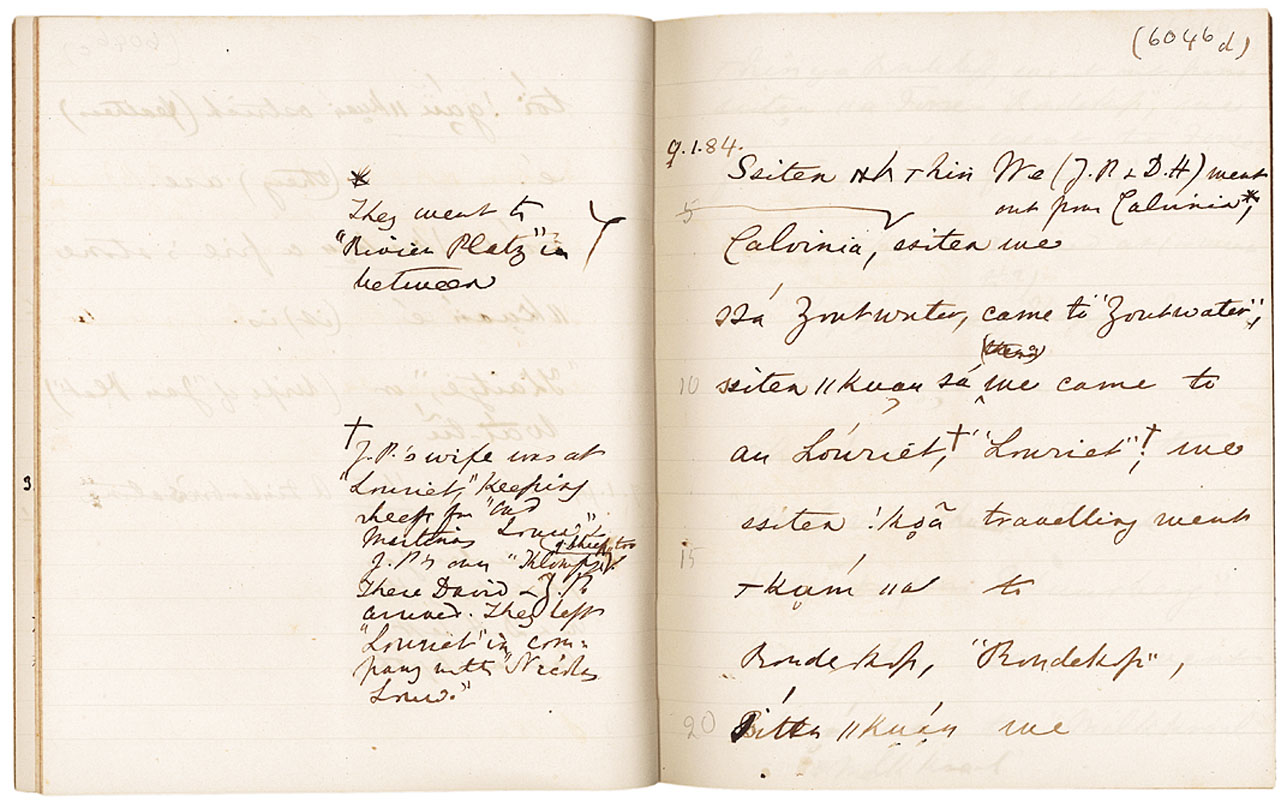 *
They went to
"Rivier Platz" in
between
†
J.P.'s wife was at
"Louriet," keeping
sheep for "
Martinis Louw" &
J.P.'s own "Klomp
(of sheep, too).
There David & J.P.
arrived. They left
"Louriet" in com=
pany with "Nicolas
Louw."
3
(6046 d)
9.1.84.
Ssiten hin We (J.P. & D.H) went
5 out from Calvinia*,
Calvinia, ssiten we
ssá Zoutwater, came to "Zoutwater",
10 ssiten ǁkuạn sá we came to
au Lóuriet,† "Louriet"†, we
ssiten !kọã travelling went
15
ǀkạm ǁa to
Rondekop, "Rondekop",
20 Síten ǁkuạn we